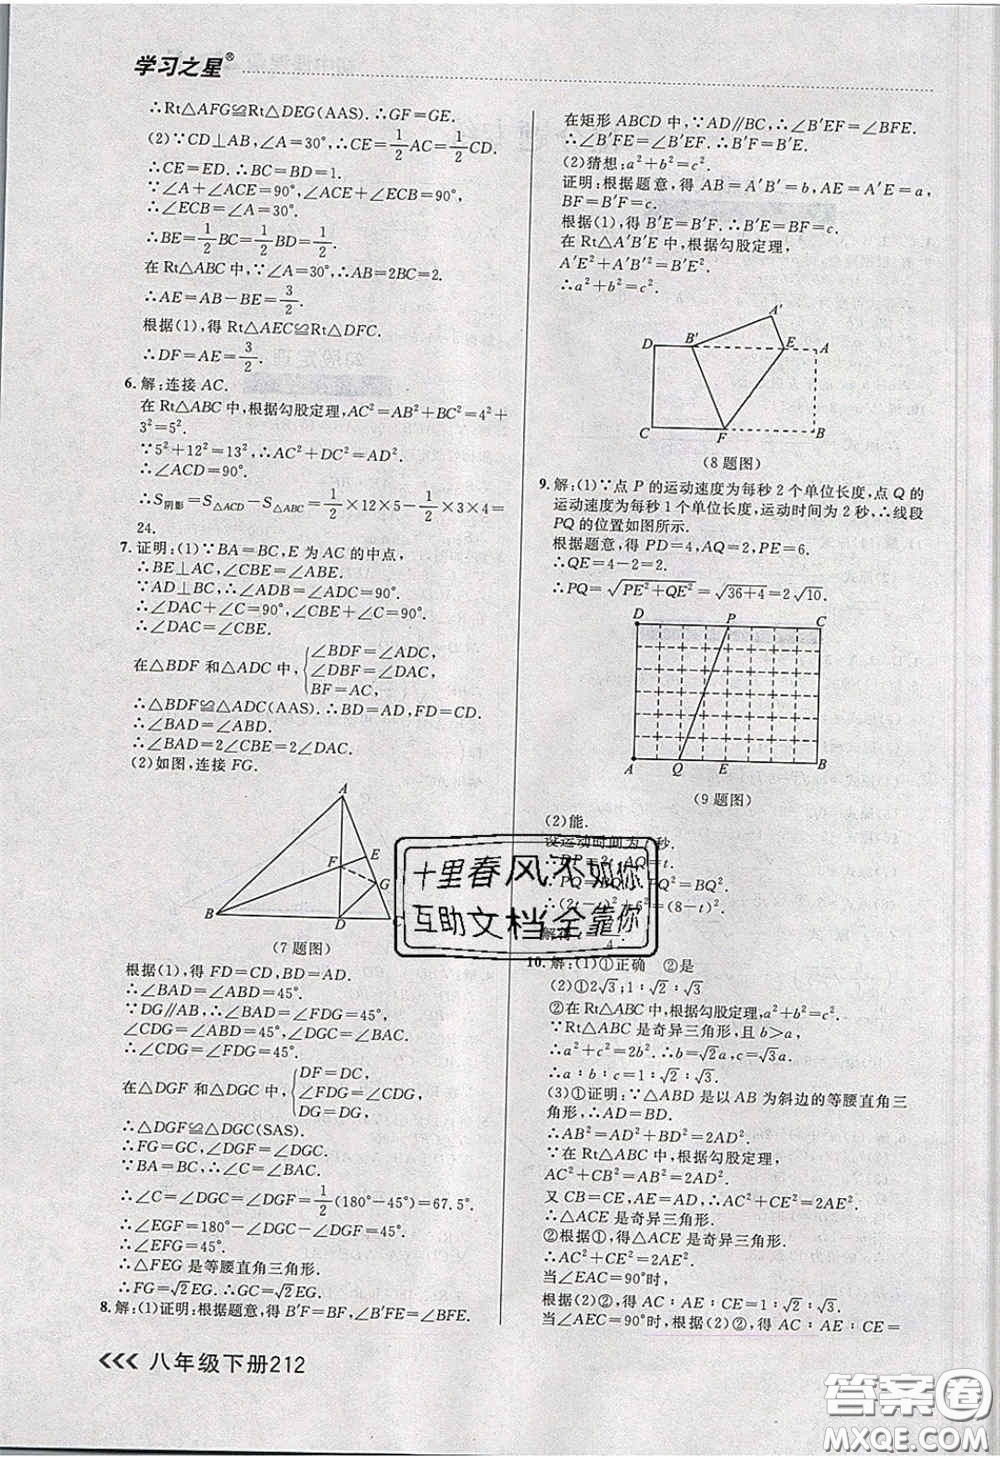 学习之星®
∴Rt△AFG≌Rt△DEG(AAS).∴GF=GE.
(2)∵CD⊥AB,∠A=30°,∴CE=1/2AC=1/2CD.
∴CE=ED.∴BC=BD=1.
∵∠A+∠ACE=90°,∠ACE+∠ECB=90°,
∴∠ECB=∠A=30°.
∴BE=1/2BC=1/2BD=1/2.
在Rt△ABC中,∵∠A=30°,∴AB=2BC=2.
∴AE=AB-BE=3/2.
根据(1),得Rt△AEC≌Rt△DFC.
∴DF=AE=3/2.
6.解:连接AC.
在Rt△ABC中,根据勾股定理,AC²=AB²+BC²=4²+
3²=5².
∵5²+12²=13²,∴AC²+DC²=AD².
∴∠ACD=90°.
∴S阴影=S△ACD-S△ABC=1/2×12×5-1/2×3×4=
24.
7.证明:(1)∵BA=BC,E为AC的中点,
∴BE⊥AC,∠CBE=∠ABE.
∵AD⊥BC,∴∠ADB=∠ADC=90°.
∴∠DAC+∠C=90°,∠CBE+∠C=90°.
∴∠DAC=∠CBE.
在△BDF和△ADC中,{∠BDF=∠ADC,
∠DBF=∠DAC,
BF=AC,
∴△BDF≌△ADC(AAS).∴BD=AD,FD=CD.
∴∠BAD=∠ABD.
∴∠BAD=2∠CBE=2∠DAC.
(2)如图,连接FG.
A
E
F
G
B
D
C
(7题图)
根据(1),得FD=CD,BD=AD.
∴∠BAD=∠ABD=45°.
∵DG∥AB,∴∠BAD=∠FDG=45°,
∠CDG=∠ABD=45°,∠DGC=∠BAC.
∴∠CDG=∠FDG=45°.
在△DGF和△DGC中,{DF=DC,
∠FDG=∠CDG,
DG=DG,
∴△DGF≌△DGC(SAS).
∴FG=GC,∠DGF=∠DGC.
∵BA=BC,∴∠C=∠BAC.
∴∠C=∠DGC=∠DGF=1/2(180°-45°)=67.5°.
∴∠EGF=180°-∠DGC-∠DGF=45°.
∴∠EFG=45°.
∴△FEG是等腰直角三角形.
∴FG=√2EG.∴GC=√2EG.
8.解:(1)证明:根据题意,得B′F=BF,∠B′FE=∠BFE.
在矩形ABCD中,∵AD∥BC,∴∠B′EF=∠BFE.
∴∠B′FE=∠B′EF.∴B′F=B′E.
(2)猜想:a²+b²=c².
证明:根据题意,得AB=A′B′=b,AE=A′E=a,
BF=B′F=c.
根据(1),得B′E=B′F.∴B′E=BF=c.
在Rt△A′B′E中,根据勾股定理,
A′E²+A′B′²=B′E².
∴a²+b²=c².
A′
D
B′
E
A
C
F
B
(8题图)
9.解:(1)∵点P的运动速度为每秒2个单位长度,点Q的
运动速度为每秒1个单位长度,运动时间为2秒,∴线段
PQ的位置如图所示.
根据题意,得PD=4,AQ=2,PE=6.
∴QE=4-2=2.
∴PQ=√(PE²+QE²)=√(36+4)=2√10.
D
P
C
A
Q
E
B
(9题图)
(2)能.
设运动时间为t秒.
∴DP=2t,AQ=t.
∴PQ=BQ.∴PQ²=BQ².
∴(2t-t)²+6²=(8-t)².
十里春风不如你
互助文档全靠你
10.解:(1)①正确 ②是
(2)①2√3;1∶√2∶√3
②在Rt△ABC中,根据勾股定理,a²+b²=c².
∵Rt△ABC是奇异三角形,且b>a,
∴a²+c²=2b².∴b=√2a,c=√3a.
∴a∶b∶c=1∶√2∶√3.
(3)①证明:∵△ABD是以AB为斜边的等腰直角三
角形,∴AD=BD.
∴AB²=AD²+BD²=2AD².
在Rt△ABC中,根据勾股定理,
AC²+CB²=AB²=2AD².
又CB=CE,AD=AE,∴AC²+CE²=2AE².
∴△ACE是奇异三角形.
②根据①,得△ACE是奇异三角形.
∴AC²+CE²=2AE².
当∠EAC=90°时,
根据(2)②,得AC∶AE∶CE=1∶√2∶√3.
当∠AEC=90°时,根据(2)②,得AC∶AE∶CE=
八年级下册212
答案圈
MXQE.COM